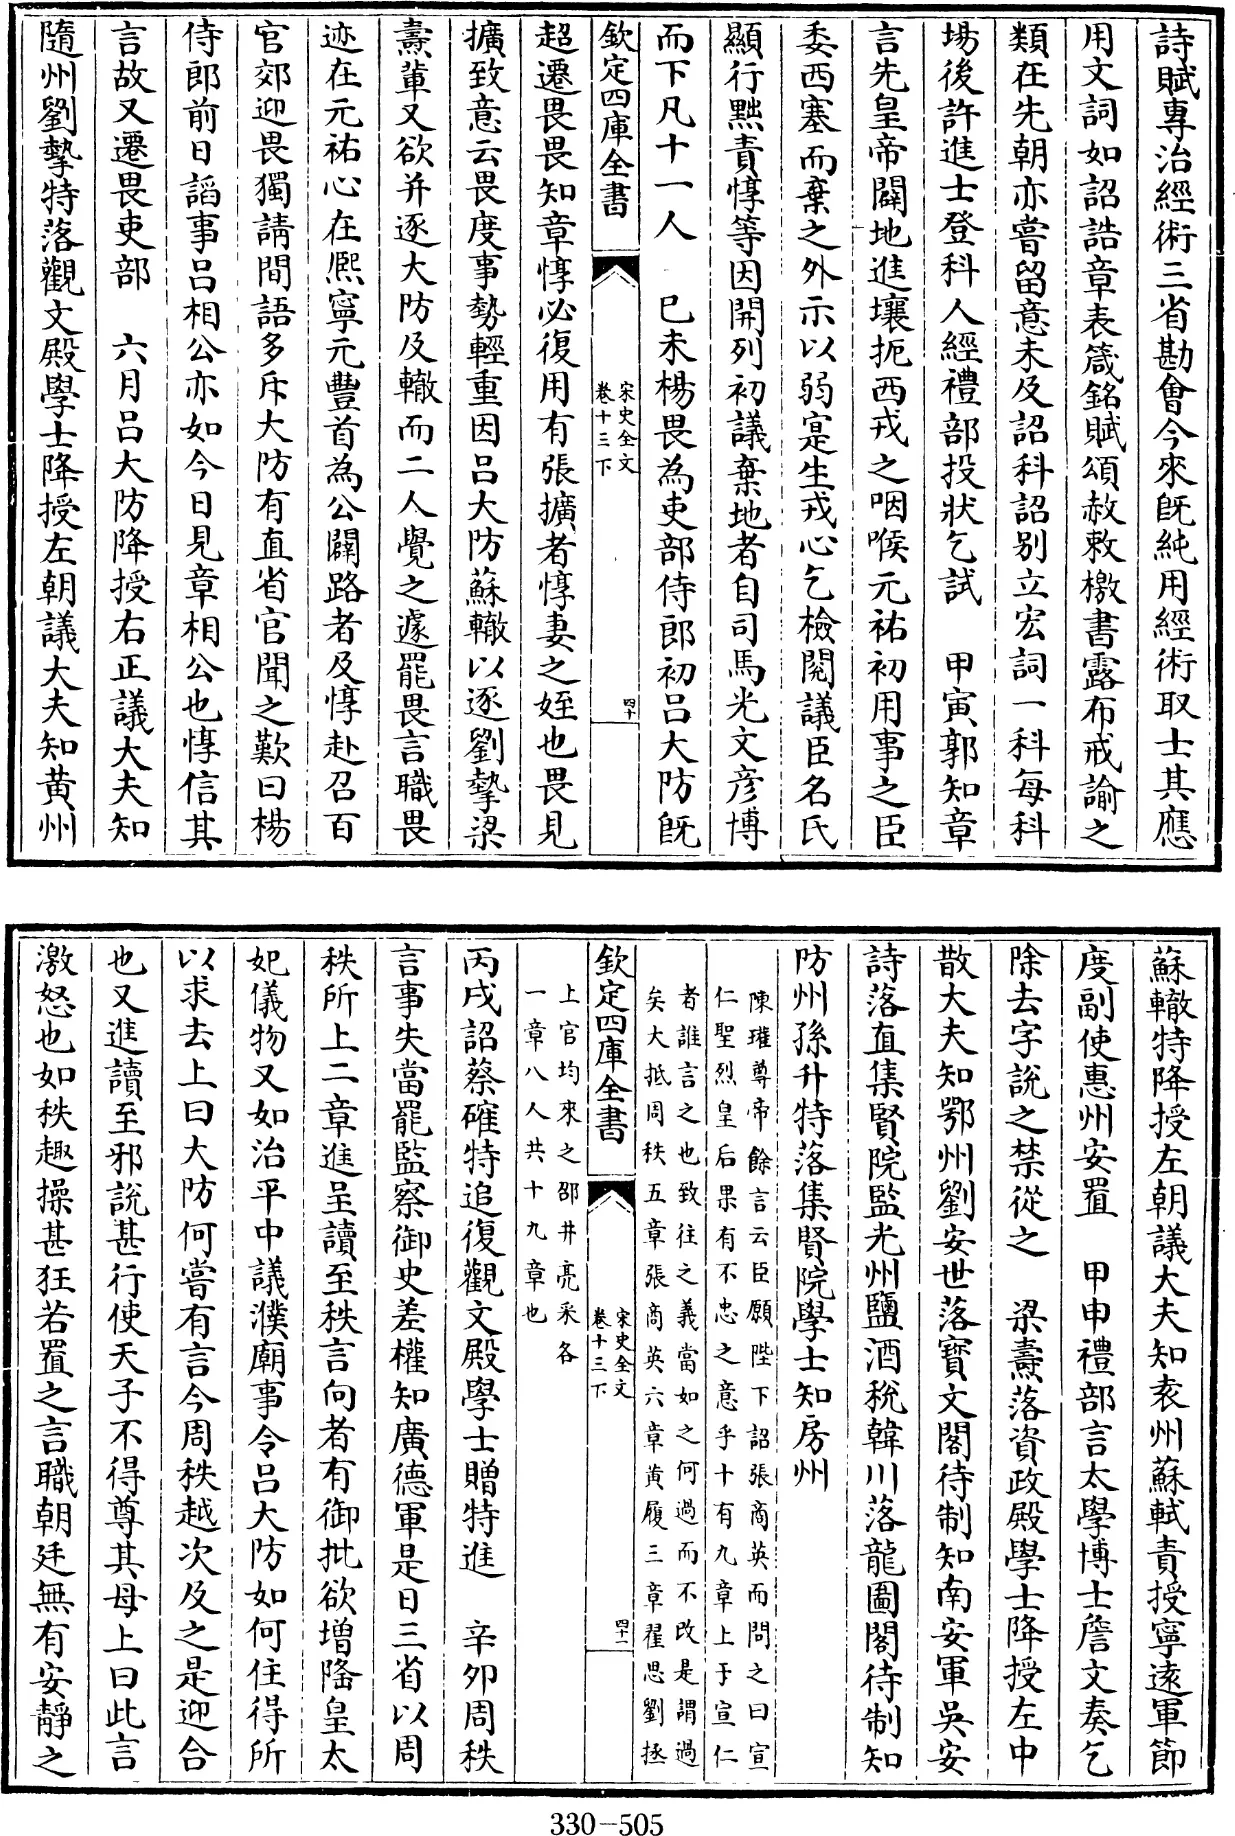 詩賦專治經術三省勘會今來旣純用經術取士其應
用文詞如詔誥章表箴銘賦頌赦敕檄書露布戒諭之
類在先朝亦嘗留意未及詔科詔别立宏詞一科每科
場後許進士登科人經禮部投狀乞試　甲寅郭知章
言先皇帝闢地進壤扼西戎之咽喉元祐初用事之臣
委西塞而棄之外示以弱寔生戎心乞檢閱議臣名氏
顯行黜責惇等因開列初議棄地者自司馬光文彦博
而下凡十一人　已未楊畏為吏部侍郎初呂大防旣
欽定四庫全書
宋史全文
卷十三下
四十
超遷畏畏知章惇必復用有張擴者惇妻之姪也畏見
擴致意云畏度事勢輕重因呂大防蘇轍以逐劉摯梁
燾輩又欲并逐大防及轍而二人覺之遽罷畏言職畏
迹在元祐心在熙寧元豐首為公闢路者及惇赴召百
官郊迎畏獨請間語多斥大防有直省官聞之歎曰楊
侍郎前日諂事呂相公亦如今日見章相公也惇信其
言故又遷畏吏部　六月呂大防降授右正議大夫知
隨州劉摯特落觀文殿學士降授左朝議大夫知黄州
蘇轍特降授左朝議大夫知袁州蘇軾責授寧遠軍節
度副使惠州安置　甲申禮部言太學博士詹文奏乞
除去字說之禁從之　梁燾落資政殿學士降授左中
散大夫知鄂州劉安世落寳文閣待制知南安軍吳安
詩落直集賢院監光州鹽酒稅韓川落龍圖閣待制知
防州孫升特落集賢院學士知房州
陳瓘尊帝餘言云臣願陛下詔張商英而問之曰宣
仁聖烈皇后果有不忠之意乎十有九章上于宣仁
者誰言之也致往之義當如之何過而不改是謂過
矣大抵周秩五章張商英六章黄履三章翟思劉拯
欽定四庫全書
宋史全文
卷十三下
四十一
上官均來之邵井亮采各
一章八人共十九章也
丙戌詔蔡確特追復觀文殿學士贈特進　辛夘周秩
言事失當罷監察御史差權知廣德軍是日三省以周
秩所上二章進呈讀至秩言向者有御批欲增隆皇太
妃儀物又如治平中議濮廟事令呂大防如何住得所
以求去上曰大防何嘗有言今周秩越次及之是迎合
也又進讀至邪說甚行使天子不得尊其母上曰此言
激怒也如秩趣操甚狂若置之言職朝廷無有安靜之
330-505